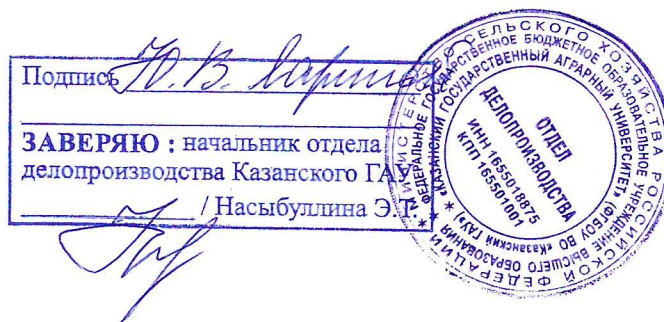 Подпись Ю. В.
ЗАВЕРЯЮ : начальник отдела
делопроизводства Казанского ГАУ
/ Насыбуллина Э.Т.
МИНИСТЕРСТВО СЕЛЬСКОГО ХОЗЯЙСТВА РОССИЙСКОЙ ФЕДЕРАЦИИ
ФЕДЕРАЛЬНОЕ ГОСУДАРСТВЕННОЕ БЮДЖЕТНОЕ ОБРАЗОВАТЕЛЬНОЕ УЧРЕЖДЕНИЕ ВЫСШЕГО ОБРАЗОВАНИЯ
«КАЗАНСКИЙ ГОСУДАРСТВЕННЫЙ АГРАРНЫЙ УНИВЕРСИТЕТ» (ФГБОУ ВО «Казанский ГАУ»)
ОТДЕЛ
ДЕЛОПРОИЗВОДСТВА
ИНН 1655018875
КПП 165501001